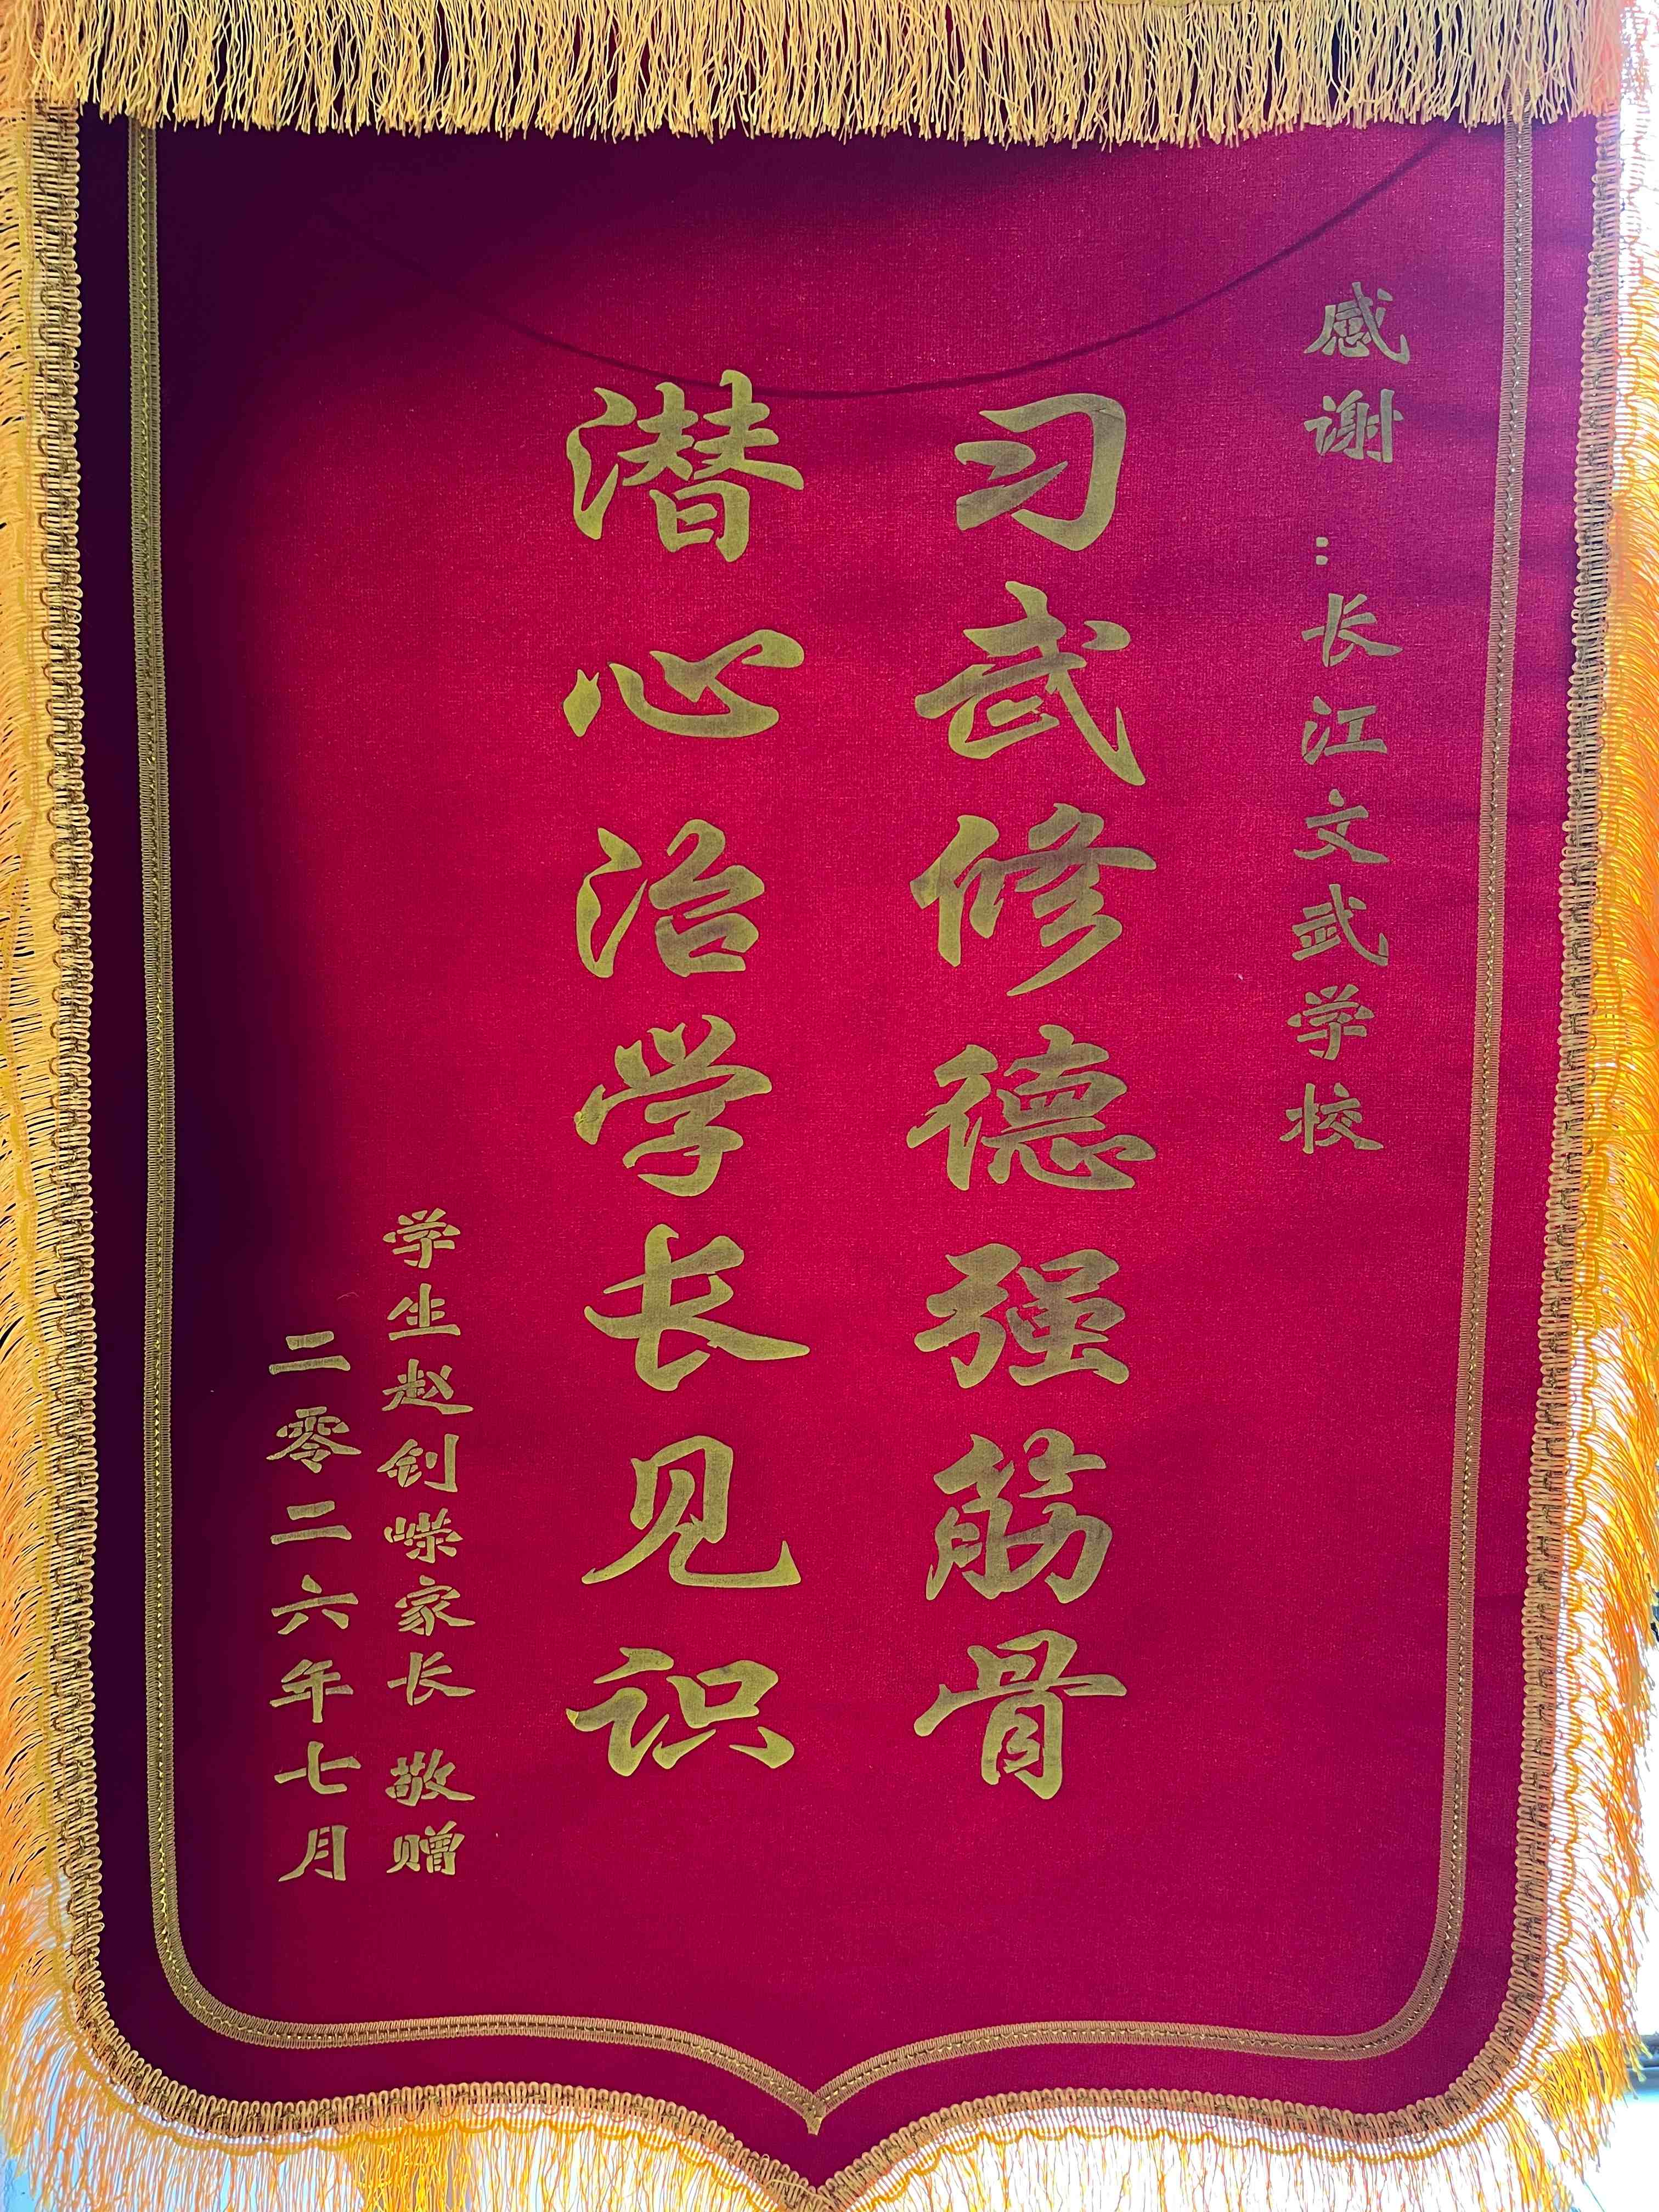 感谢：长江文武学校
习武修德强筋骨
潜心治学长见识
学生赵钊嵘家长 敬赠
二零二六年七月